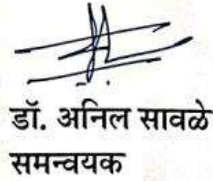 डॉ. अनिल सावळे
समन्वयक